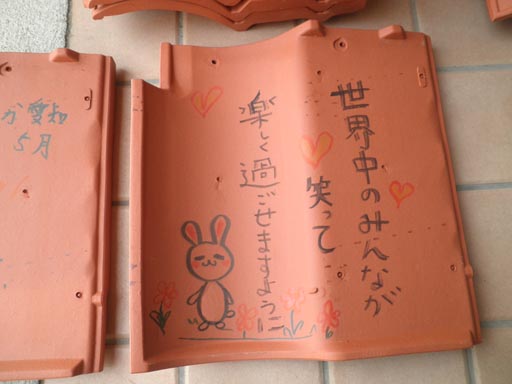 世界中のみんなが
笑って
楽しく過ごせますように
愛知
5月